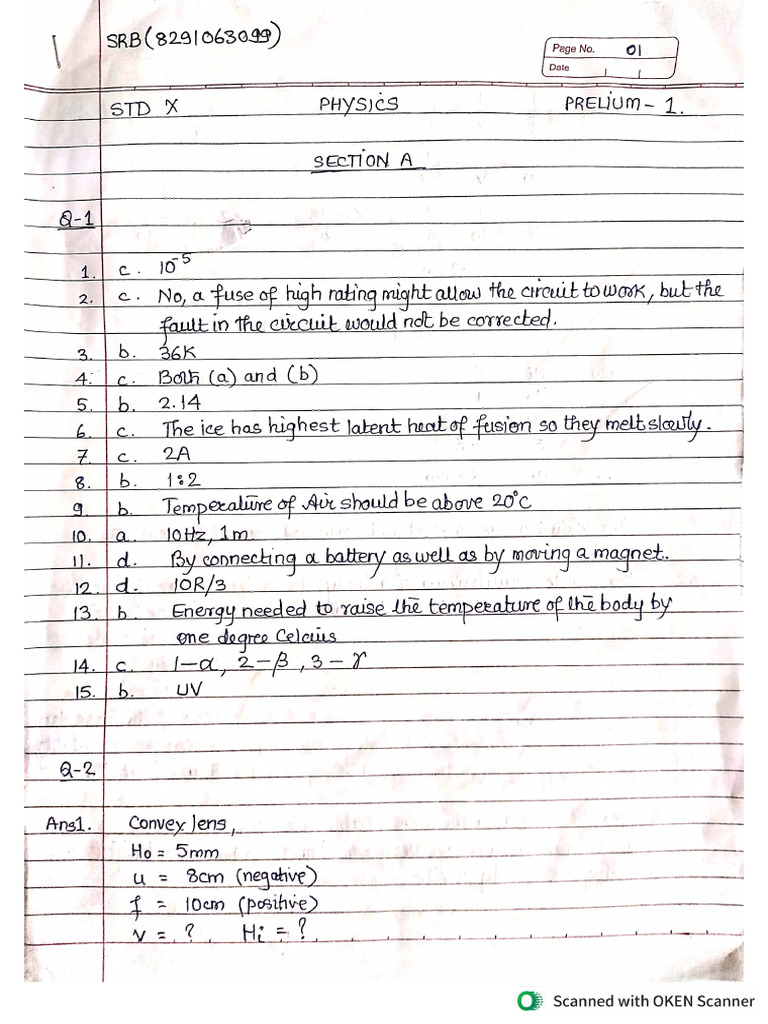 SRB(8291063099)
Page No. 01
Date
STD X PHYSICS PRELIUM - 1.
SECTION A
Q-1
1. c. 10⁻⁵
2. c. No, a fuse of high rating might allow the circuit to work, but the
fault in the circuit would not be corrected.
3. b. 36K
4. c. Both (a) and (b)
5. b. 2.14
6. c. The ice has highest latent heat of fusion so they melt slowly.
7. c. 2A
8. b. 1:2
9 b. Temperature of Air should be above 20°C
10. a. 10Hz, 1m
11. d. By connecting a battery as well as by moving a magnet.
12. d. 10R/3
13. b. Energy needed to raise the temperature of the body by
one degree Celcius
14. c. 1-α, 2-β, 3-γ
15. b. UV
Q-2
Ans1. Convex lens,
Ho = 5mm
u = 8cm (negative)
f = 10cm (positive)
v = ? Hi = ?
Scanned with OKEN Scanner